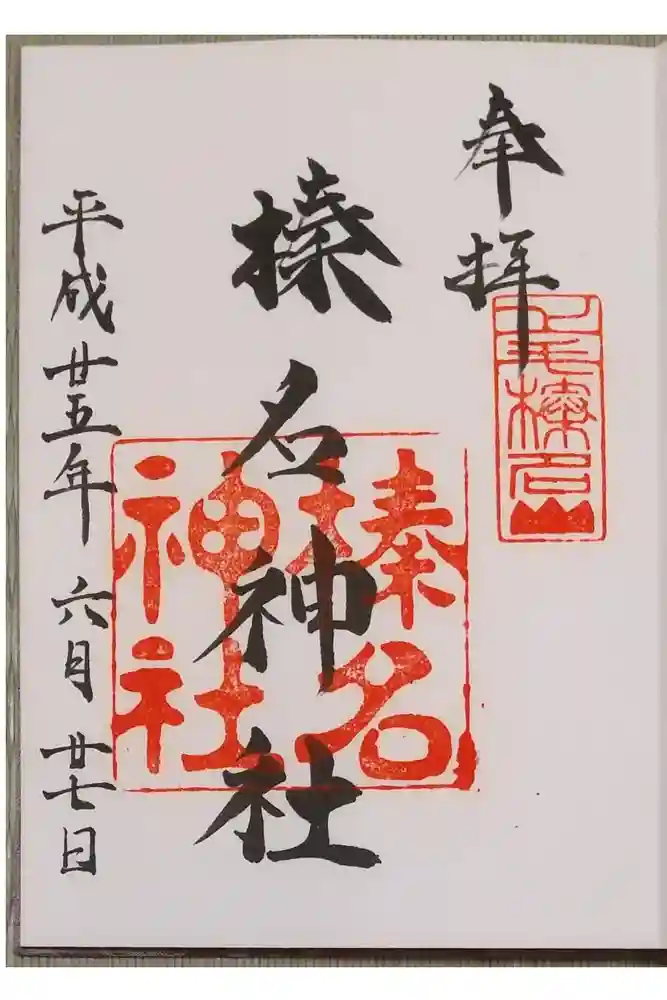 奉拝
上毛榛名山
榛名神社
榛名
神社
平成廿五年六月廿七日